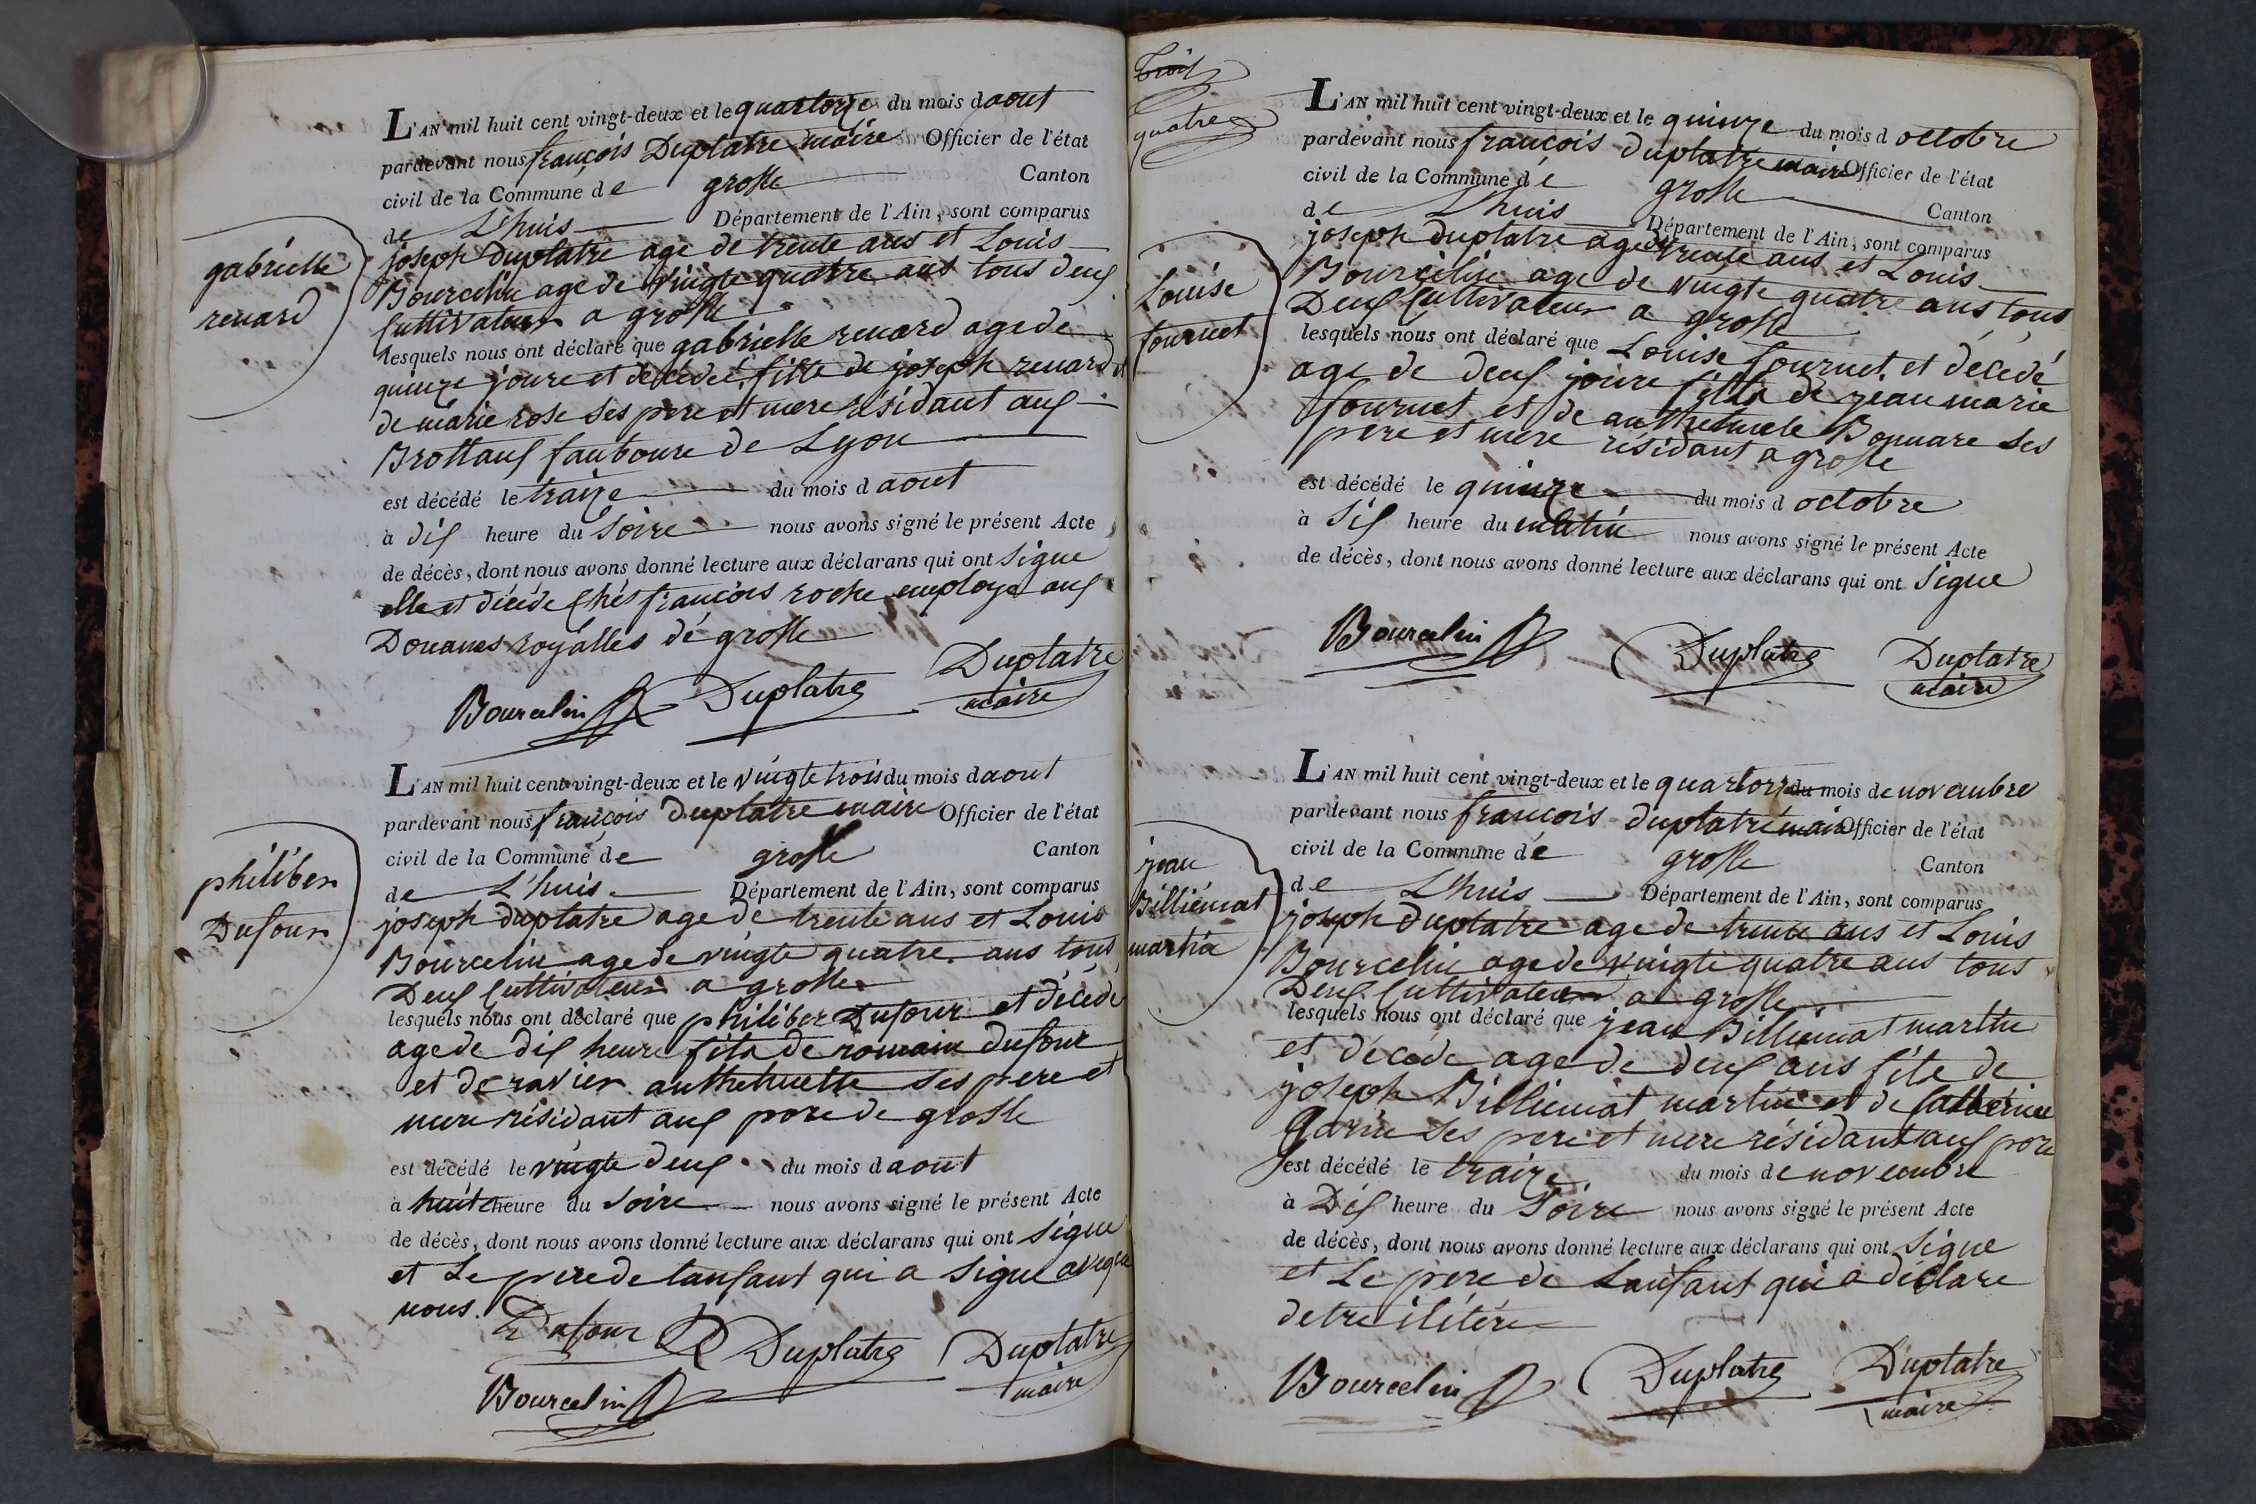 gabrielle
renard
L'AN mil huit cent vingt-deux et le quartorze du mois d aout
pardevant nous françois Duplatre maire Officier de l'état
civil de la Commune de groslle Canton
de L'huis Département de l'Ain, sont comparus
joseph Duplatre age de trente ans et Louis
Bourcelin age de vingte quatre ans tous deux
Cultivateur a groslle
lesquels nous ont déclaré que gabrielle renard age de
quinze joure et décédeé fille de joseph renard et
de marie rose ses pere et mere résidant aux
Brottaux faubourc de Lyon
est décédé le traize du mois d aout
à dix heure du soire nous avons signé le présent Acte
de décès, dont nous avons donné lecture aux déclarans qui ont signe
elle et décéde chés françois roche employe aux
Douanes royalles dé groslle
Bourcelin Duplatre Duplatre
maire
philiber
Dufour
L'AN mil huit cent vingt-deux et le vingte trois du mois d aout
pardevant nous françois Duplatre maire Officier de l'état
civil de la Commune de groslle Canton
de L'huis Département de l'Ain, sont comparus
joseph duplatre age de trente ans et Louis
Bourcelin age de vingte quatre ans tous
Deux Cultivateur a groslle
lesquels nous ont déclaré que philiber Dufour et décéde
age de dix heure fils de romain dufour
et de ravier anthelmette ses pere et
mere résidant aux pore de groslle
est décédé le vingte deux du mois d aout
à huite heure du soire nous avons signé le présent Acte
de décès, dont nous avons donné lecture aux déclarans qui ont signe
et Le pere de lanfant qui a signe aveque
nous.
Dufour Duplatre Duplatre
Bourcelin maire
trois
quatre
Louise
fournet
L'AN mil huit cent vingt-deux et le quinze du mois d octobre
pardevant nous françois duplatre maire Officier de l'état
civil de la Commune dé groslle Canton
de L'huis Département de l'Ain, sont comparus
joseph duplatre age de trente ans et Louis
Bourcelin age de vingte quatre ans tous
Deux Cultivateur a groslle
lesquels nous ont déclaré que Louise fournet et décédé
age de deux joure fille de jean marie
fournet et de Bonnare ses
pere et mere résidant a groslle
est décédé le quinze du mois d octobre
à six heure du matin nous avons signé le présent Acte
de décès, dont nous avons donné lecture aux déclarans qui ont signe
Bourcelin Duplatre Duplatre
maire
jean
Billiémat
martin
L'AN mil huit cent vingt-deux et le quartorze du mois de novembre
pardevant nous françois duplatré maire Officier de l'état
civil de la Commune dé groslle Canton
de L'huis Département de l'Ain, sont comparus
joseph duplatre age de trente ans et Louis
Bourcelin age de vingte quatre ans tous
Deux Cultivateur a groslle
lesquels nous ont déclaré que jean Billiemat martin
et décéde age de deux ans fils de
joseph Billiemat martin et de Catherine
ses pere et mere résidant aux pore
est décédé le traize du mois de novembre
à Dix heure du soire nous avons signé le présent Acte
de décès, dont nous avons donné lecture aux déclarans qui ont signe
et Le pere de Lanfant qui a déclare
detre ilitére
Bourcelin Duplatre Duplatre
maire